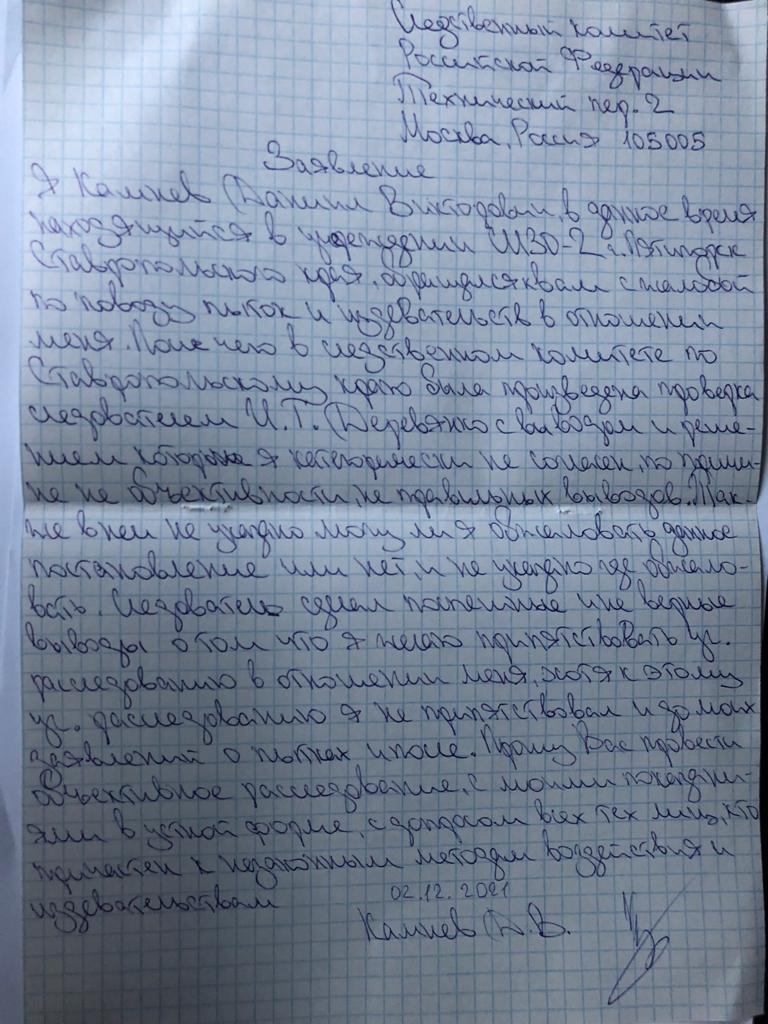 Следственный комитет
Российской Федерации
Технический пер. 2
Москва, Россия 105005
Заявление
Я Камнев Даниил Викторович, в данное время
находящийся в учреждении ШИЗО-2 г. Пятигорск
Ставропольского края, обращался к вам с жалобой
по поводу пыток и издевательств в отношении
меня. После чего в следственном комитете по
Ставропольскому краю была произведена проверка
следователем И.Г. Деревянко с выводом и реше-
нием которого я категорически не согласен, по причи-
не не объективности, не правильных выводов. Так-
же в нем не указано могу ли я обжаловать данное
постановление или нет, и не указано где обжало-
вать. Следователь сделал поспешные и не верные
выводы о том что я желаю припятствовать уг.
расследованию в отношении меня, хотя к этому
уг. расследованию я не припятствовал и до моих
заявлений о пытках и после. Прошу Вас провести
объективное расследование, с моими показани-
ями в устной форме, с допросом всех тех лиц, кто
причастен к незаконным методам воздействия и
издевательствам
02.12.2021
Камнев Д.В.